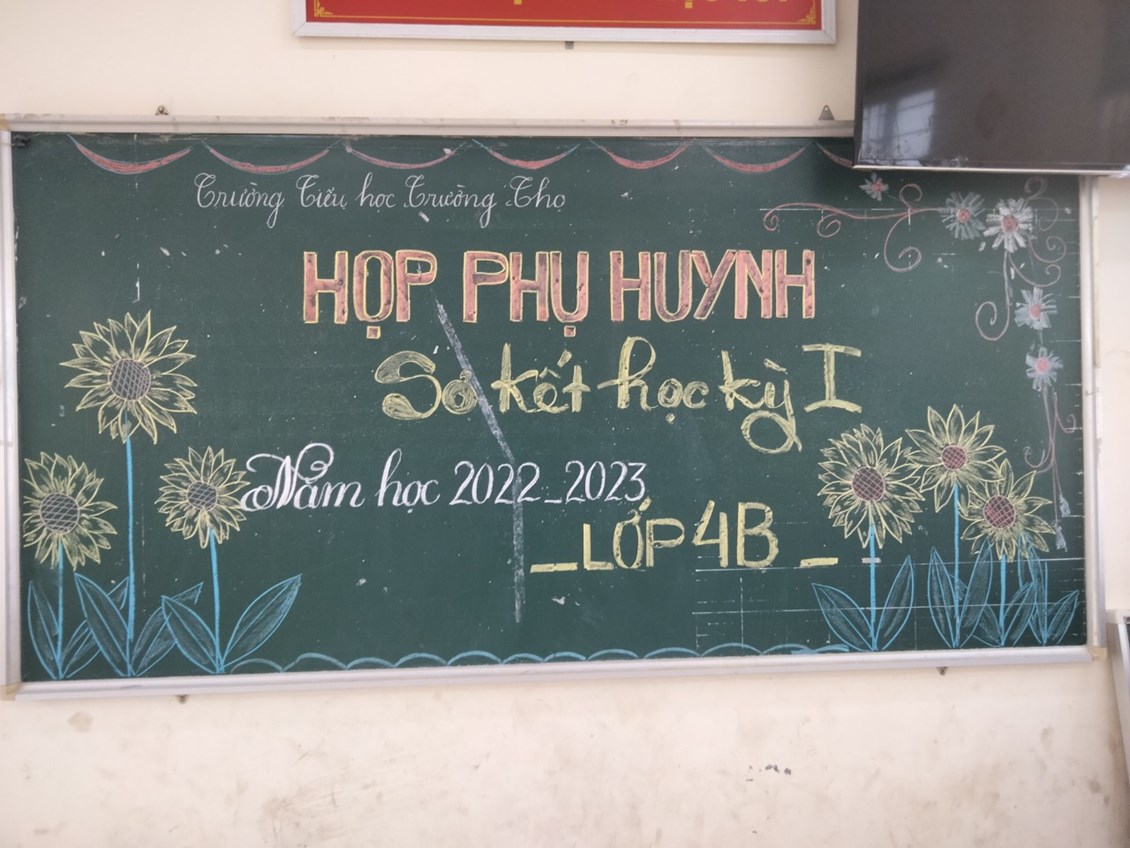 Trường Tiểu học Trường Thọ
HỌP PHỤ HUYNH
Sơ kết học kỳ I
Năm học 2022_2023
_LỚP 4B_